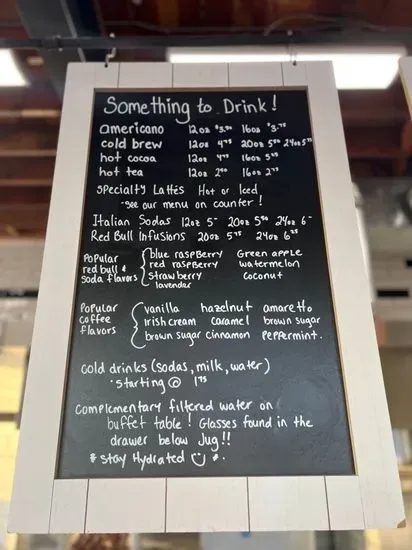 Something to Drink!
americano 12oz $3.50 16oz $3.75
cold brew 12oz 4.75 20oz 5.50 24oz 5.75
hot cocoa 12oz 4.75 16oz 5.25
hot tea 12oz 2.50 16oz 2.75
Specialty Lattés Hot or Iced
*see our menu on counter!
Italian Sodas 12oz 5- 20oz 5.50 24oz 6-
Red Bull Infusions 20oz 5.75 24oz 6.25
Popular red bull & soda flavors
blue raspberry Green apple
red raspberry watermelon
strawberry coconut
lavendar
Popular coffee flavors
vanilla hazelnut amaretto
irish cream caramel brown sugar
brown sugar cinnamon peppermint.
cold drinks (sodas, milk, water)
*starting @ 1.75
complementary filtered water on
buffet table! Glasses found in the
drawer below Jug!!
* Stay Hydrated *.